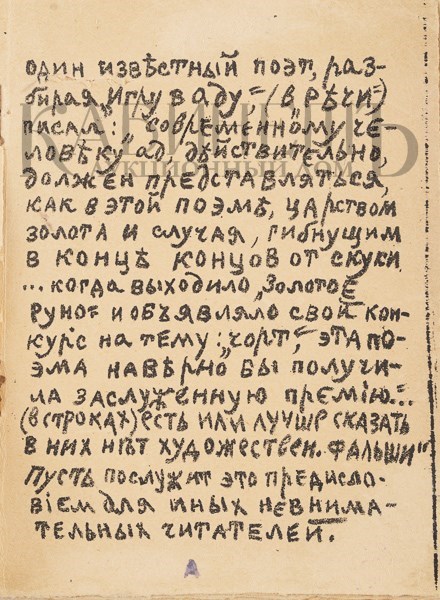 один извѣстный поэт, раз-
бирая „Игру в аду“ (в „Рѣчи“)
писал: „современному че-
ловѣку ад, дѣйствительно,
должен представляться,
как в этой поэмѣ, царством
золота и случая, гибнущим
в концѣ концов от скуки
...когда выходило „Золотое
Руно“ и объявляло свой кон-
курс на тему: „чорт“, эта по-
эма навѣрно бы получи-
ла заслуженную премію...
(в строках) есть или лучше сказать
в них нѣт художествен. фальши“
Пусть послужит это предисло-
віем для иных невнима-
тельных читателей.